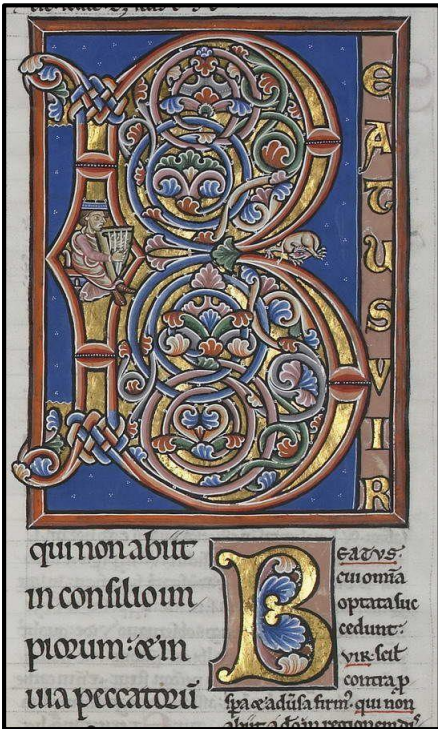 BEATUS VIR
qui non abiit
in consilio im
piorum: & in
uia peccatorū
BEATVS.
cui omīa
optata suc
cedunt.
VIR. scil
contra p
spa & aduīsa firm9. qui non